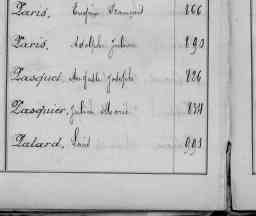 Paris, Eugène François 166
Paris, Adolphe Julien 193
Pasquet, Auguste Joseph 126
Pasquier, Julien Marie
Patard, Louis